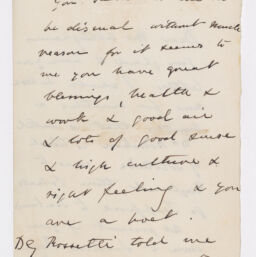 you
be dismal without much
reason for it seems to
me you have great
blessings, health &
work & good air
& lots of good sense
& high culture &
right feeling & you
are a poet.
Rossetti told me